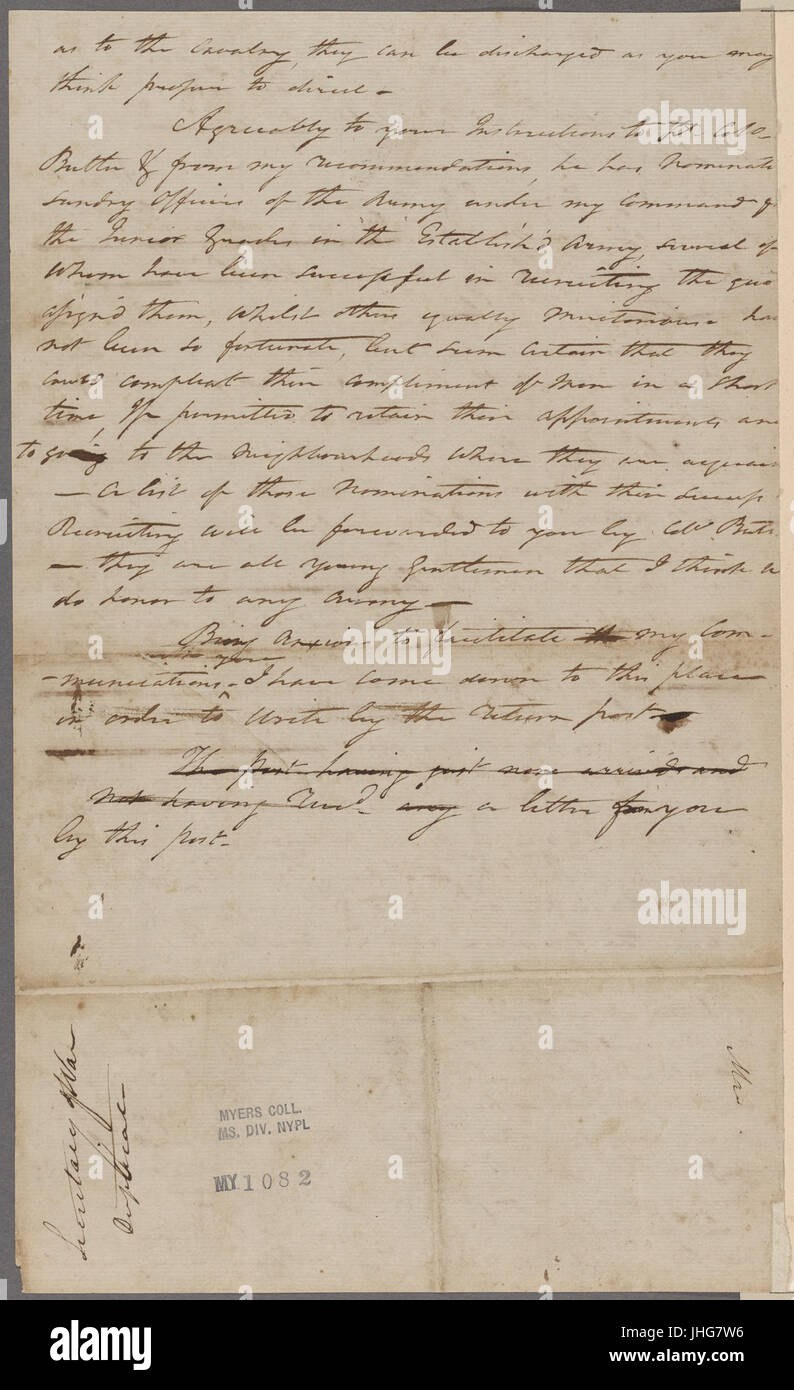 as to the Cavalry, they can be discharged as you may
think proper to direct –
Agreeably to your Instructions to Lt. Colo
Butler & from my recommendations, he has Nominate
Sundry Officers of the Army under my Command f
the Junior Grades in the Establish'd Army, several of
Whom have been successful in recruiting the quo
assign'd them, Whilst others equally Meritorious ha
not been so fortunate, but seem certain that they
cou'd compleat their compliment of Men in a short
time, If permitted to retain their appointments and
to going to the Neighbourhoods Where they are acquain
– a list of those Nominations with their Success
Recruiting will be forwarded to you by Colo. Butl
– they are all young Gentlemen that I think w
do honor to any Army –
Being Anxious to facilitate the my Com–
with you
–munications – I have come down to this place
in order to Write by the return post –
The post having just now arrived and
not having Recd. any a letter from you
by this post –
Secretary of War
Duplicate
MYERS COLL.
MS. DIV. NYPL
MY 1082
alamy
Image ID: JHG7W6
www.alamy.com